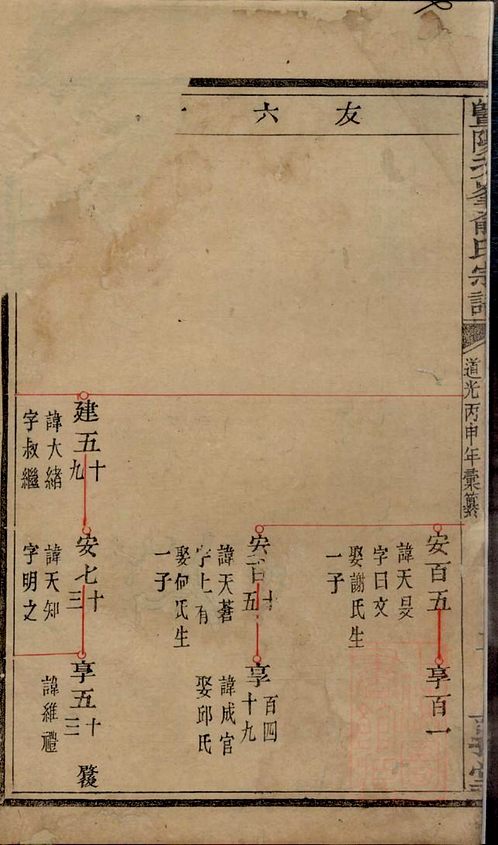 友六
道光丙申年彙纂
安百五
諱天旻
字曰文
娶謝氏生
一子
享百一
諱天蒼
字上有
娶何氏生
一子
享百四
十九
諱成官
娶邱氏
建五十
九
諱大緒
字叔繼
安七十
三
諱天知
字明之
享五十
三
諱維禮